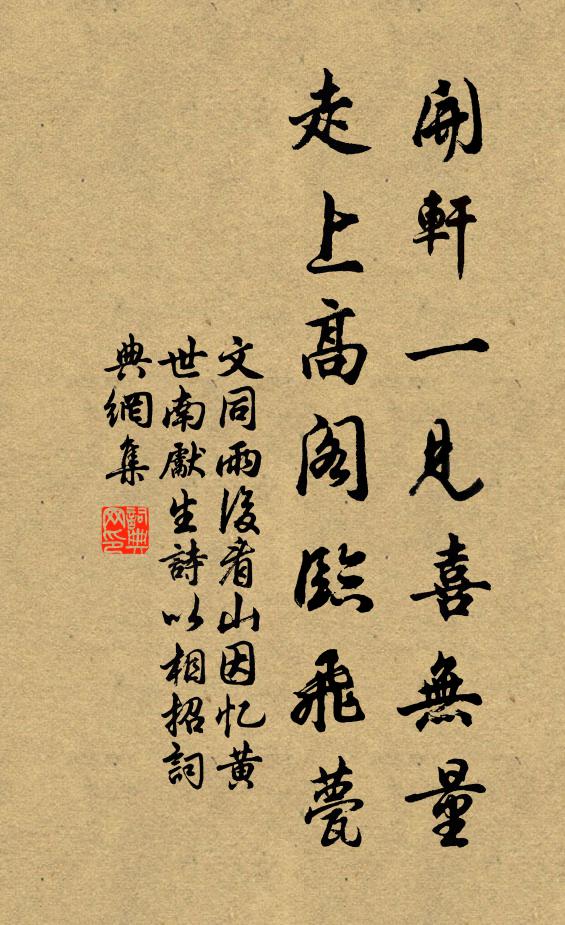 開軒一見喜無量
走上高閣臨飛甍
文同雨後看山因忆黄
世南獻生詩以相招詞
典網集
詞典
网印